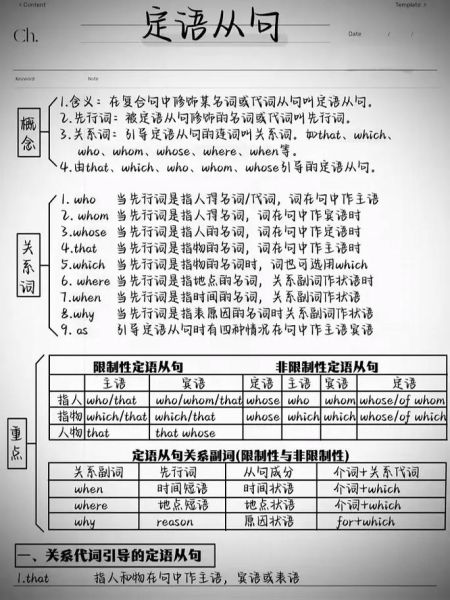 < Content Template >
定语从句
Ch.
Date / /
Keyword Note
概念
1.含义：在复合句中修饰某名词或代词从句叫定语从句。
2.先行词：被定语从句修饰的名词或代词叫先行词。
3.关系词：引导定语从句的连词叫关系词。如that、which、
who、whom、whose、where、when等。
4.由that、which、who、whom、whose引导的定语从句。
关系词
1. who 当先行词是指人得名词/代词，词在句中作主语
2. whom 当先行词是指人得名词，词在句中作宾语时
3.whose 当先行词是指人的名词，词在句中作定语时
4.that 当先行词是指物的名词，词在句中作主语时
5.which 当先行词是指物的名词时，词也可选用which
6. where 当先行词是指地点的名词，关系副词作状语时
7.when 当先行词是指时间的名词，关系副词作状语
8.why 当先行词是指表原因的名词时关系副词作状语
9. as 引导定语从句时有四种情况在句中作主语宾语
重点
限制性定语从句 非限制性定语从句
主语 宾语 定语 主语 宾语 定语
指人 who/that who/whom/that whose who whom whose/of whom
指物 which/that which/that whose which which whose/of which
人物 that that whose
定语从句关系副词(限制性与非限制性)
关系副词 先行词 从句成分 介词+关系代词
when 时间短语 时间状语 介词+which
where 地点短语 地点状语 介词+which
why reason 原因状语 for+which
一、关系代词引导的定语从句
1.that 指人和物在句中作主语，宾语或表语